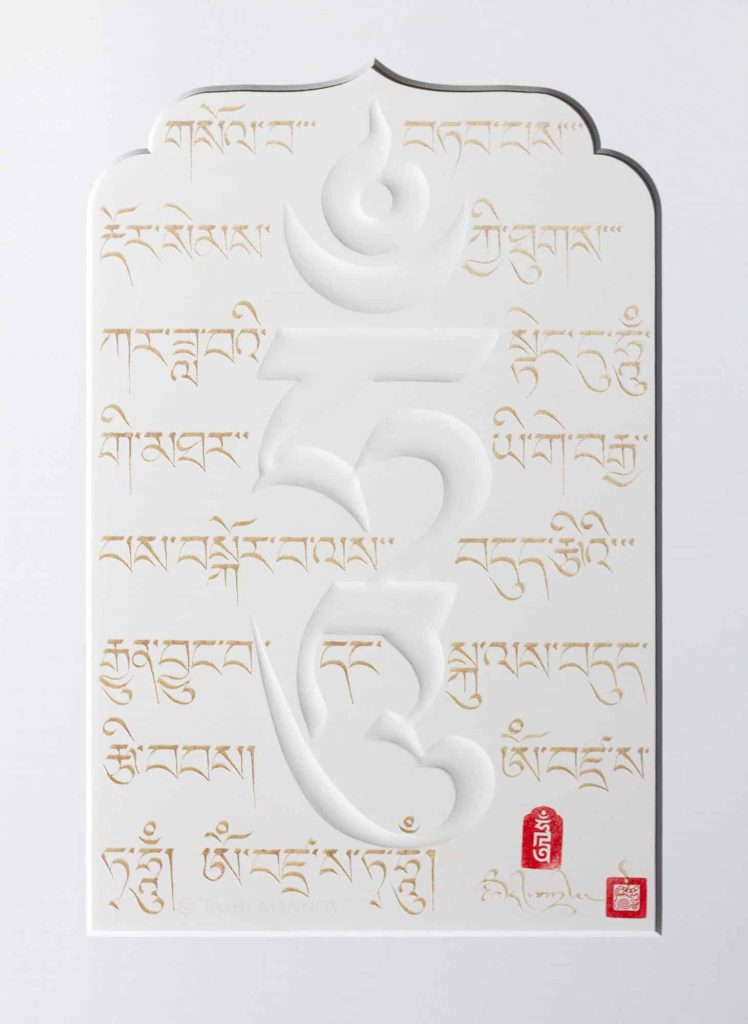 གསོལ་བ་་་ བཏབ་པས་་་
རྡོར་སེམས་ ཀྱི་ཐུགས་་་
ཀར་ཟླ་བའི་ སྟེང་དུ་ཧཱུྃ་
གི་མཐར་་ ཡི་གེ་བརྒྱ་་
པས་བསྐོར་བ་ལས་་ བདུད་རྩིའི་་་
རྒྱུན་བྱུང་བ་ དང་ སྐུ་ལས་བདུད་
རྩི་བབས། ཨོཾ་བཛྲཾ་ས་
ཏ་ཧཱུྃ། ཨོཾ་བཛྲཾ་ས་ཏ་ཧཱུྃ།
© TASHI MANNOX